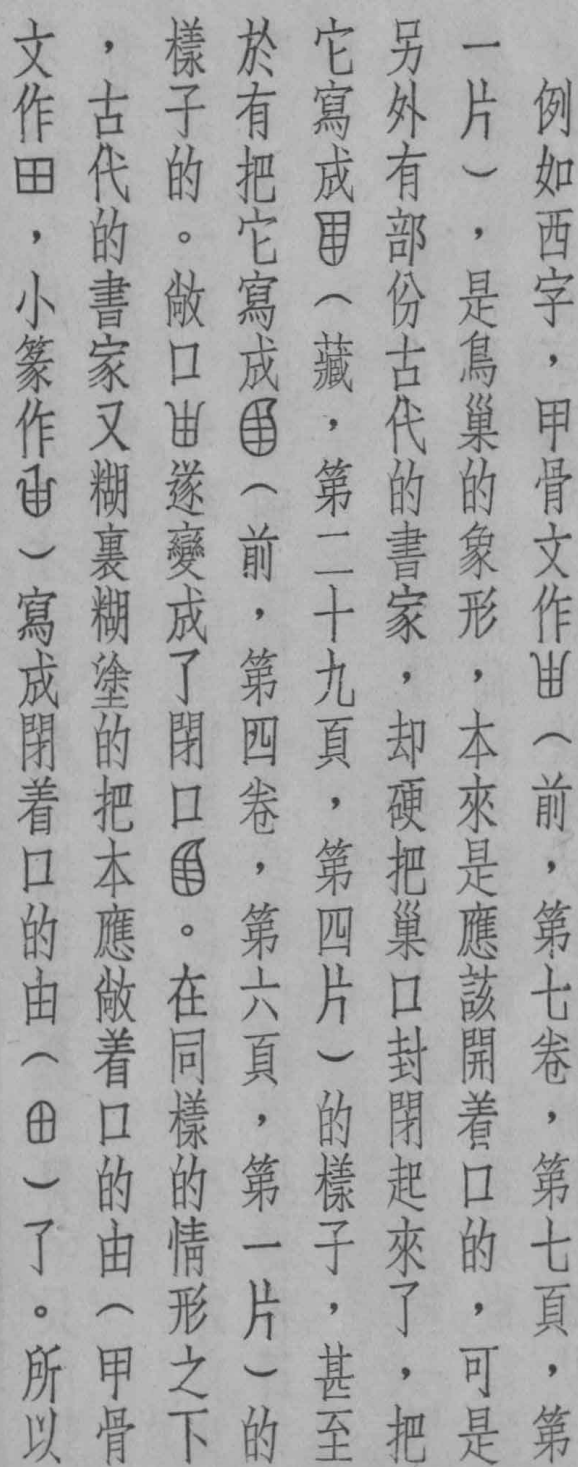 例如西字，甲骨文作（前，第七卷，第七頁，第
一片），是鳥巢的象形，本來是應該開着口的，可是
另外有部份古代的書家，却硬把巢口封閉起來了，把
它寫成（藏，第二十九頁，第四片）的樣子，甚至
於有把它寫成（前，第四卷，第六頁，第一片）的
樣子的。敞口遂變成了閉口。在同樣的情形之下
，古代的書家又糊裏糊塗的把本應敞着口的由（甲骨
文作，小篆作）寫成閉着口的由（）了。所以